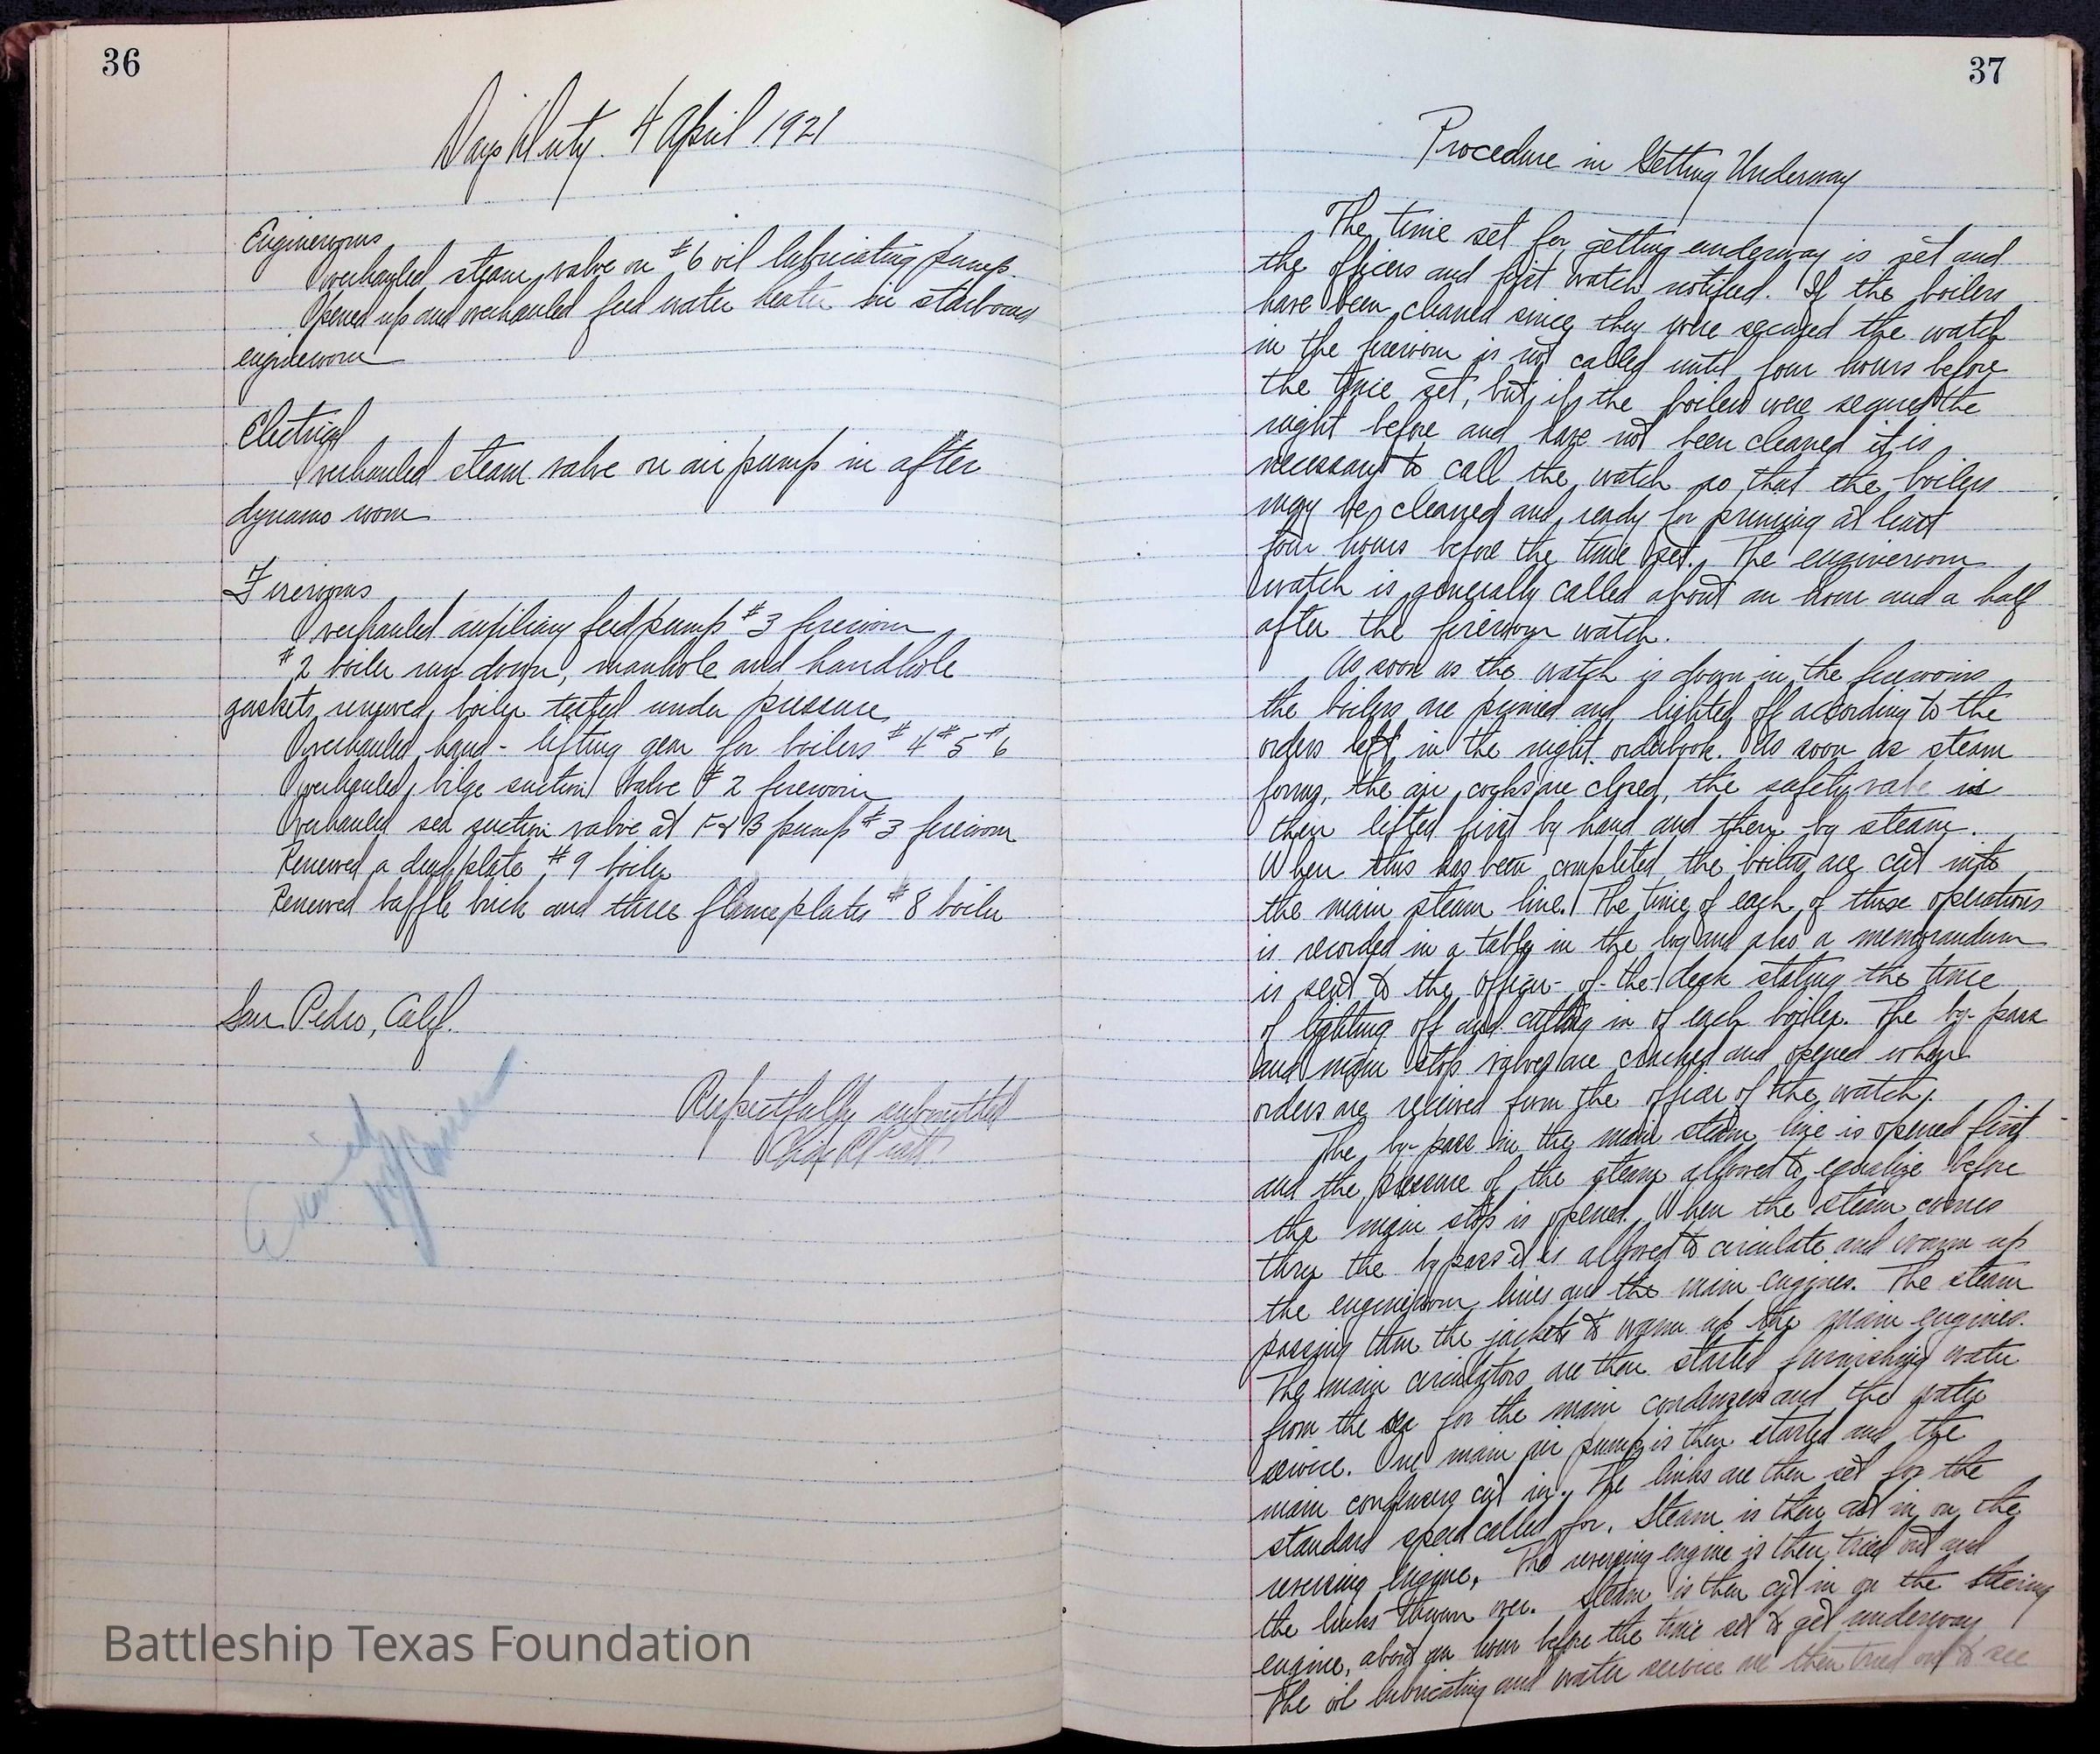 36
Day's Duty. 4 April 1921
Enginerooms
Overhauled steam valve on #6 oil lubricating pump
Opened up and overhauled feed water heater in starboard
engineroom
Electrical
Overhauled steam valve on air pump in after
dynamo room
Firerooms
Overhauled auxiliary feed pump #3 fireroom
#2 boiler run down, manhole and handhole
gaskets renewed, boiler tested under pressure
Overhauled hand-lifting gear for boilers #4 #5 #6
Overhauled bilge suction valve #2 fireroom
Overhauled sea suction valve at F&B pump #3 fireroom
Renewed a dead plate #9 boiler
Renewed baffle brick and three flame plates #8 boiler
San Pedro, Calif.
Respectfully submitted
Battleship Texas Foundation
37
Procedure in Getting Underway
The time set for getting underway is set and
the officers and first watch notified. If the boilers
have been cleaned since they were secured the watch
in the fireroom is not called until four hours before
the time set, but if the boilers were secured the
night before and have not been cleaned it is
necessary to call the watch so that the boilers
may be cleaned and ready for priming at least
four hours before the time set. The engineroom
watch is generally called about an hour and a half
after the fireroom watch.
As soon as the watch is down in the firerooms
the boilers are primed and lighted off according to the
orders left in the night orderbook. As soon as steam
forms, the air cocks are closed, the safety valve is
then lifted first by hand and then by steam.
When this has been completed the boilers are cut into
the main steam line. The time of each of these operations
is recorded in a table in the log and also a memorandum
is sent to the officer-of-the-deck stating the time
of lighting off and cutting in of each boiler. The by-pass
and main stop valves are cracked and opened when
orders are received from the officer of the watch.
The by-pass in the main steam line is opened first
and the pressure of the steam allowed to equalize before
the main stop is opened. When the steam comes
thru the bypass it is allowed to circulate and warm up
the engineroom lines and the main engines. The steam
passing thru the jackets to warm up the main engines.
The main circulators are then started furnishing water
from the sea for the main condensers and the water
service. One main air pump is then started and the
main condensers cut in. The links are then set for the
standard speed called for. Steam is then cut in on the
reversing engine. The reversing engine is then tried out and
the links thrown over. Steam is then cut in on the steering
engine, about an hour before the time set to get underway
The oil lubricating and water service are then tried out to see